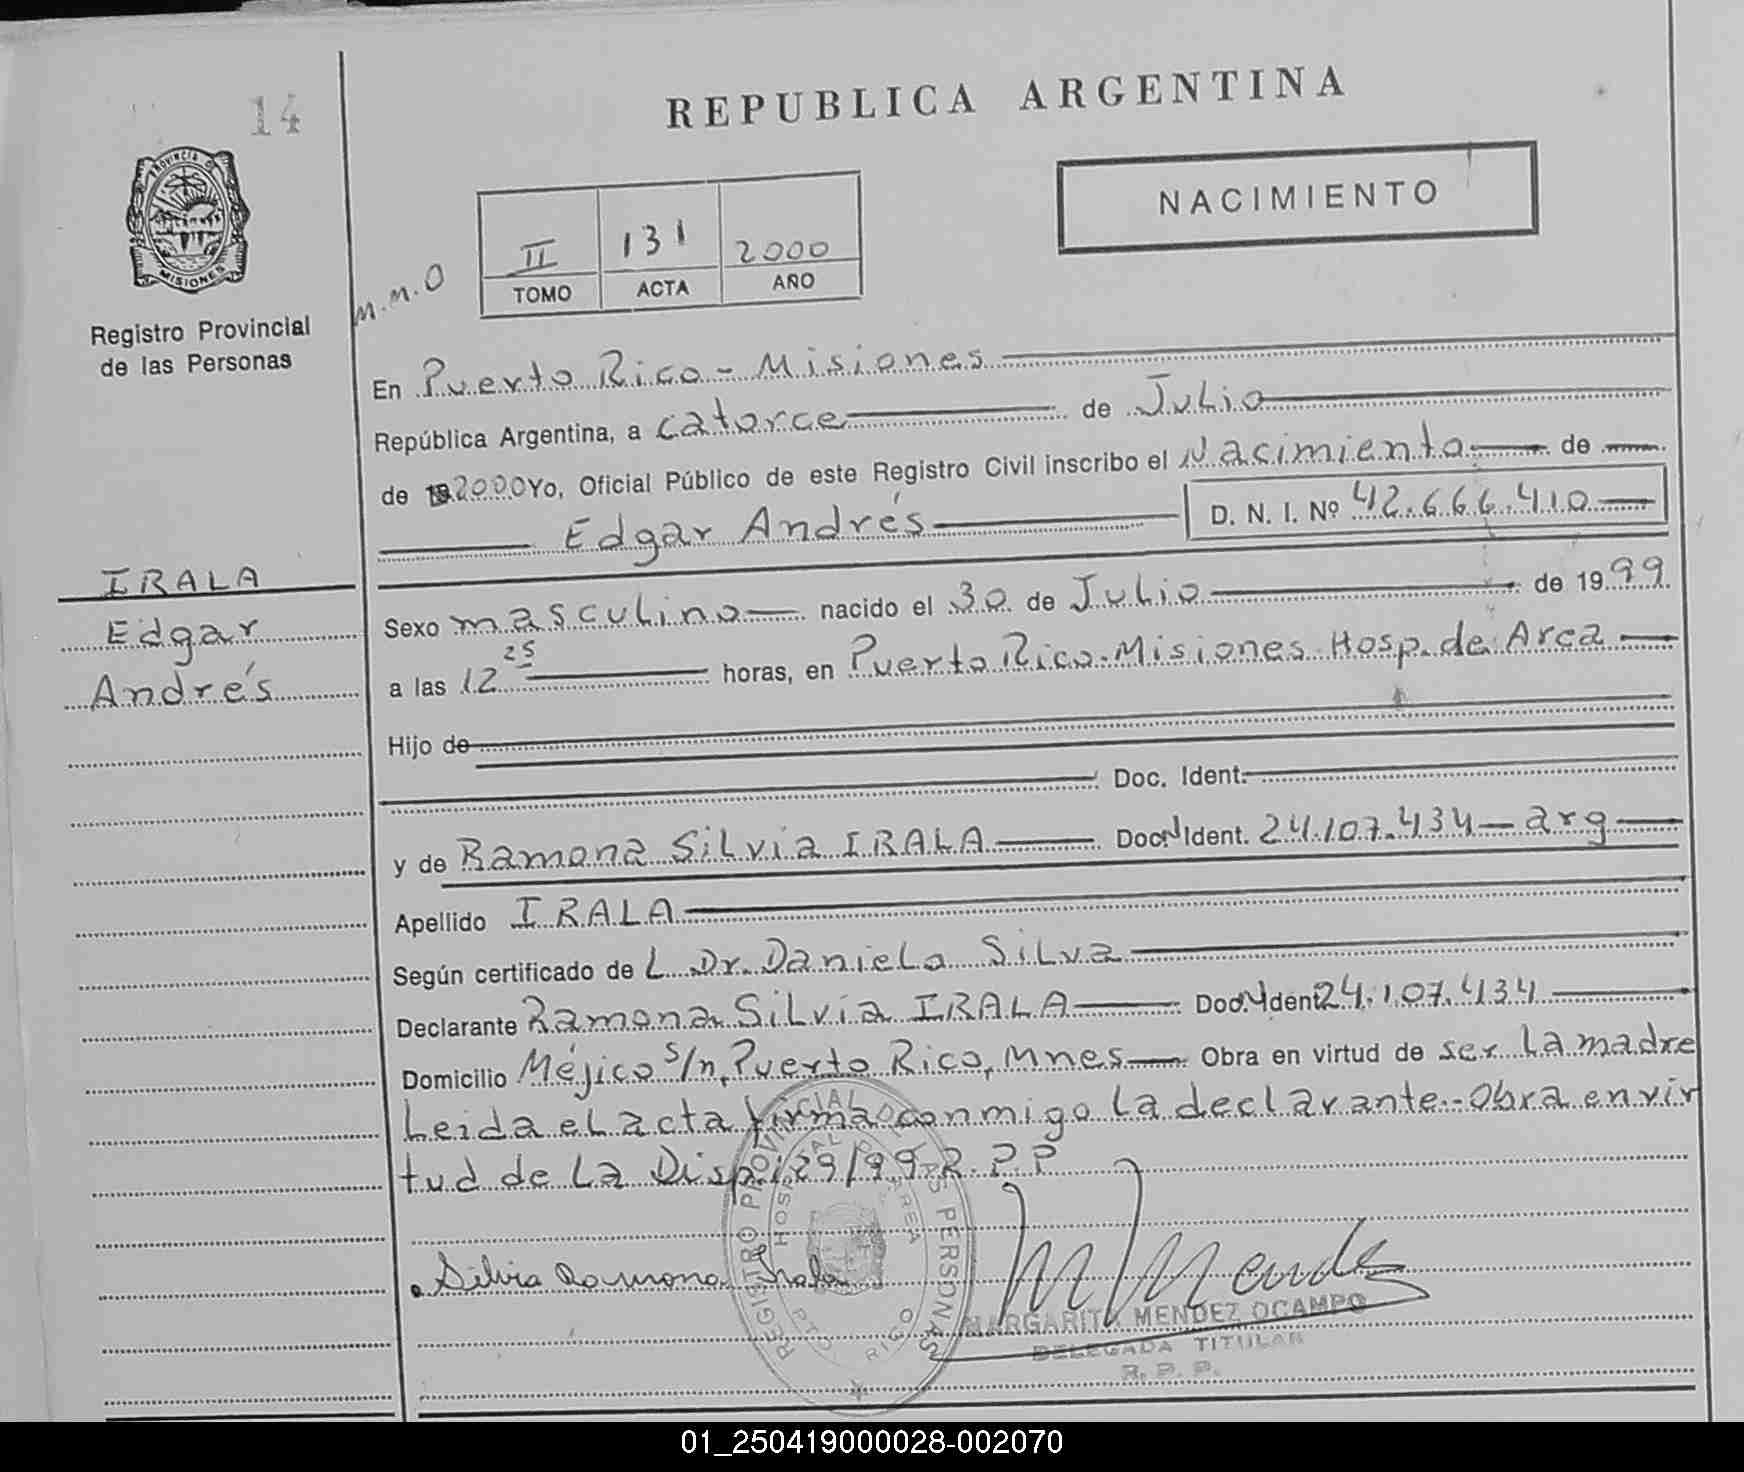 14
REPUBLICA ARGENTINA
NACIMIENTO
PROVINCIA DE
MISIONES
II 131 2000
TOMO ACTA AÑO
m.m.O
Registro Provincial
de las Personas
En Puerto Rico - Misiones
República Argentina, a catorce de Julio
de 19 2000 Yo, Oficial Público de este Registro Civil inscribo el Nacimiento de
Edgar Andrés D. N. I. Nº 42.666.410
IRALA
Edgar
Andrés
Sexo masculino nacido el 30 de Julio de 1999
a las 12 25 horas, en Puerto Rico. Misiones. Hosp. de Area
Hijo de
Doc. Ident.
y de Ramona Silvia IRALA Doc. N Ident. 24.107.434 - arg
Apellido IRALA
Según certificado de L Dr. Daniela Silva
Declarante Ramona Silvia IRALA Doc. N Ident 24.107.434
Domicilio Méjico s/n, Puerto Rico, Mnes Obra en virtud de ser la madre
Leida el acta firma conmigo la declarante.- Obra en vir
tud de la Disp. 29/99 R.P.P
REGISTRO PROVINCIAL DE LAS PERSONAS
HOSPITAL DE AREA
PTO. RICO
Silvia Ramona Irala
M Mendez
MARGARITA MENDEZ OCAMPO
DELEGADA TITULAR
R. P. P.
01_250419000028-002070